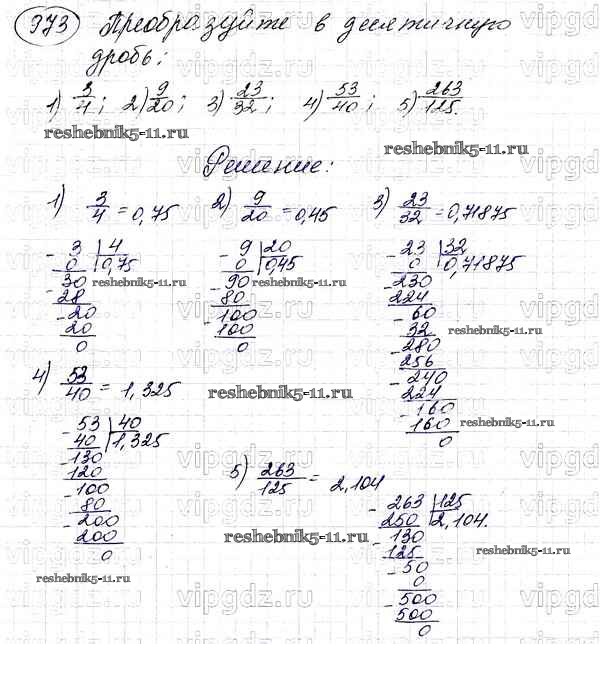 973 Преобразуйте в десятичную
дробь:
1) 3/4; 2) 9/20; 3) 23/32; 4) 53/40; 5) 263/125.
reshebnik5-11.ru
reshebnik5-11.ru
Решение:
1) 3/4 = 0,75 2) 9/20 = 0,45 3) 23/32 = 0,71875
- 3 | 4
0 | 0,75
- 30
28
- 20
20
0
reshebnik5-11.ru
- 9 | 20
0 | 0,45
- 90
80
- 100
100
0
reshebnik5-11.ru
- 23 | 32
0 | 0,71875
- 230
224
- 60
32
- 280
256
- 240
224
- 160
160
0
reshebnik5-11.ru
4) 53/40 = 1,325
reshebnik5-11.ru
- 53 | 40
40 | 1,325
- 130
120
- 100
80
- 200
200
0
reshebnik5-11.ru
5) 263/125 = 2,104
reshebnik5-11.ru
- 263 | 125
250 | 2,104.
- 130
125
- 50
0
- 500
500
0
reshebnik5-11.ru
vipgdz.ru